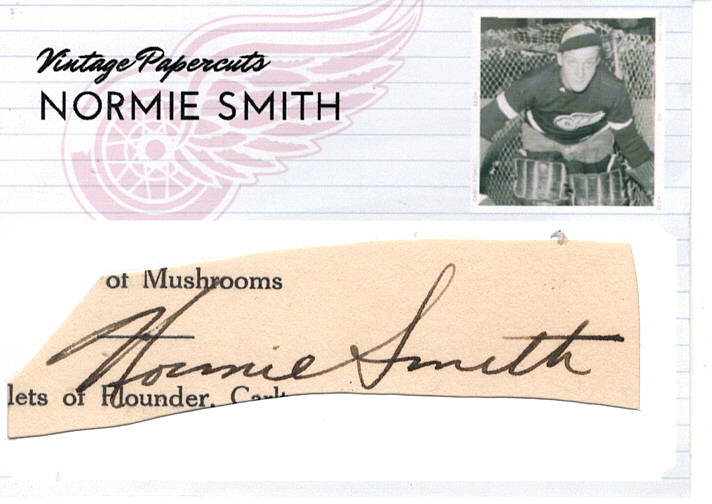 Vintage Papercuts
NORMIE SMITH
of Mushrooms
Normie Smith
lets of Flounder, Carlt